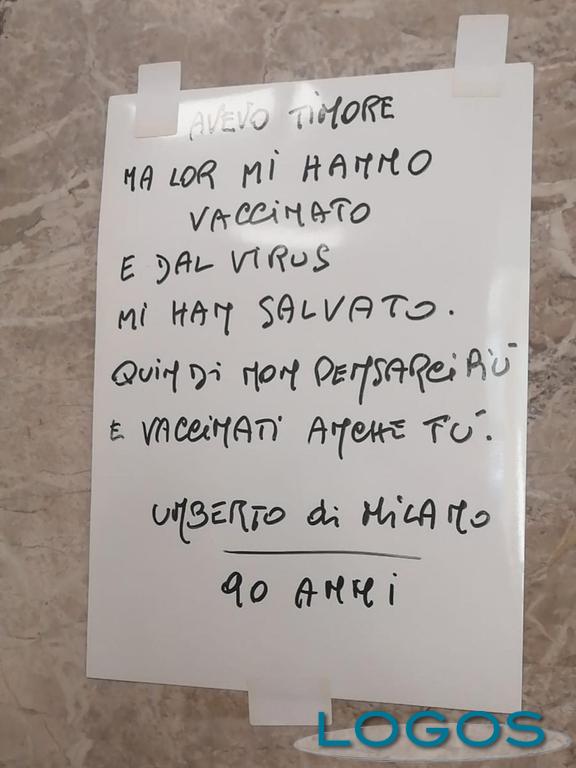 AVEVO TIMORE
MA LOR MI HANNO
VACCINATO
E DAL VIRUS
MI HAN SALVATO.
QUINDI NON PENSARCI PIÙ
E VACCINATI ANCHE TÙ.
UMBERTO di MILANO
90 ANNI
LOGOS